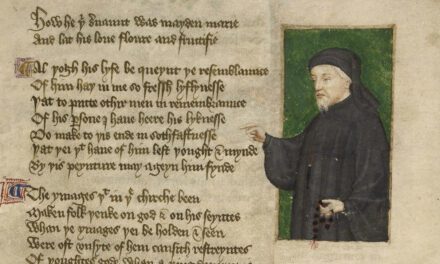 How he þͬ ẜuaunt was mayden marie
And lat his loue floure and fructifie
Al þogh his lyfe be queynt þe resemblaunce
Of him haþ in me so fressh lyflynesse
Þat to putte othir men in remembraunce
Of his persone I haue heere his lyknesse
Do make to þis ende in sothfastnesse
Þat þei þͭ haue of him lest þought & mynde
By þis peynture may ageyn him fynde
The ymages þͭ in þͤ chirche been
Maken folk þenke on god & on his seyntes
Whan þe ymages þei be holden & seen
Were oft vnsyte of hem causith restreyntes
Of þoughtes gode whan a